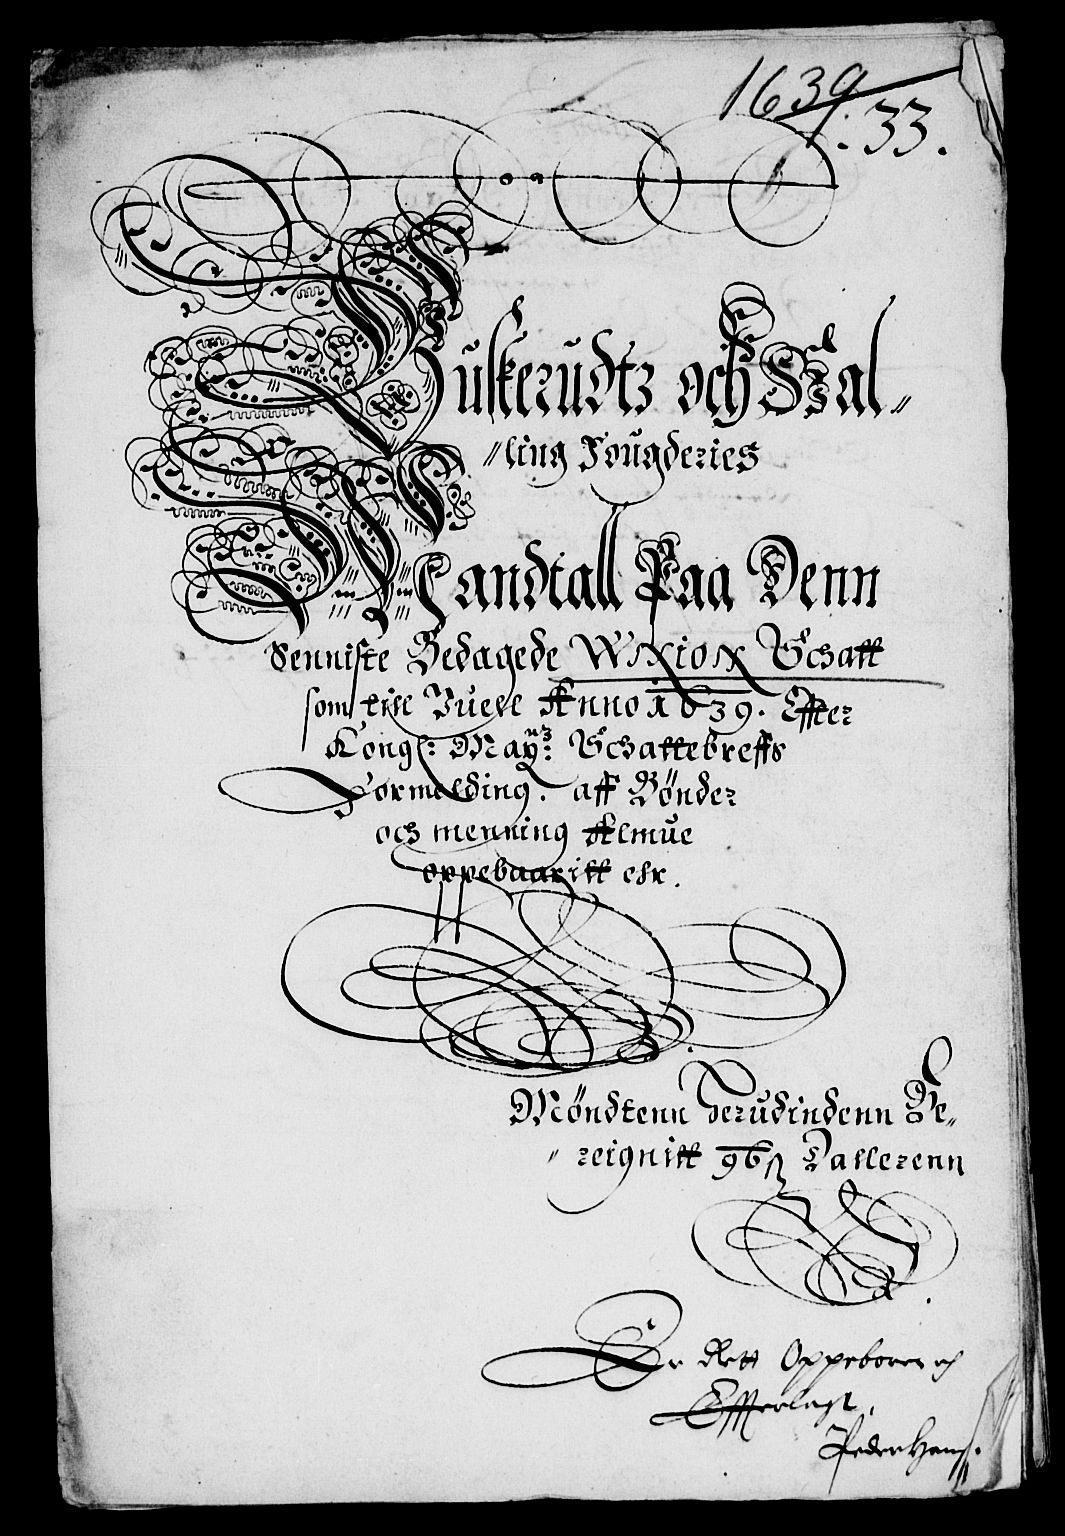 1639
.33.
Buskerudtz och Hal„
„ling Fougderies
Mandtall Paa Denn
Senniste Bedagede Unions Schatt
som till Juele Anno 1639. Effter
Kongl: May: Schattebreffs
Formelding. aff Bönder
och menning Almue
oppebaaritt ehr.
Möndtenn derudindenn Be„
„reignitt 96 ß Dallerenn
Er Rett Oppeboren och
Efferlagt.
Peder Hanß.